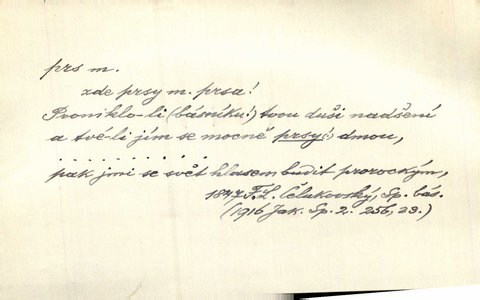 prs m.
zde prsy m. prsa!
Proniklo-li (básníku!) tvou duši nadšení
a tvé-li jím se mocně prsy(!) dmou,
. . . . . . . . . . .
pak jmi se svět hlasem budit prorockým,
1847 F. L. Čelakovský, Sp. bás.
(1916 Jak. Sp. 2. 256, 23.)